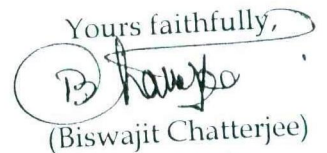 Yours faithfully,
(Biswajit Chatterjee)